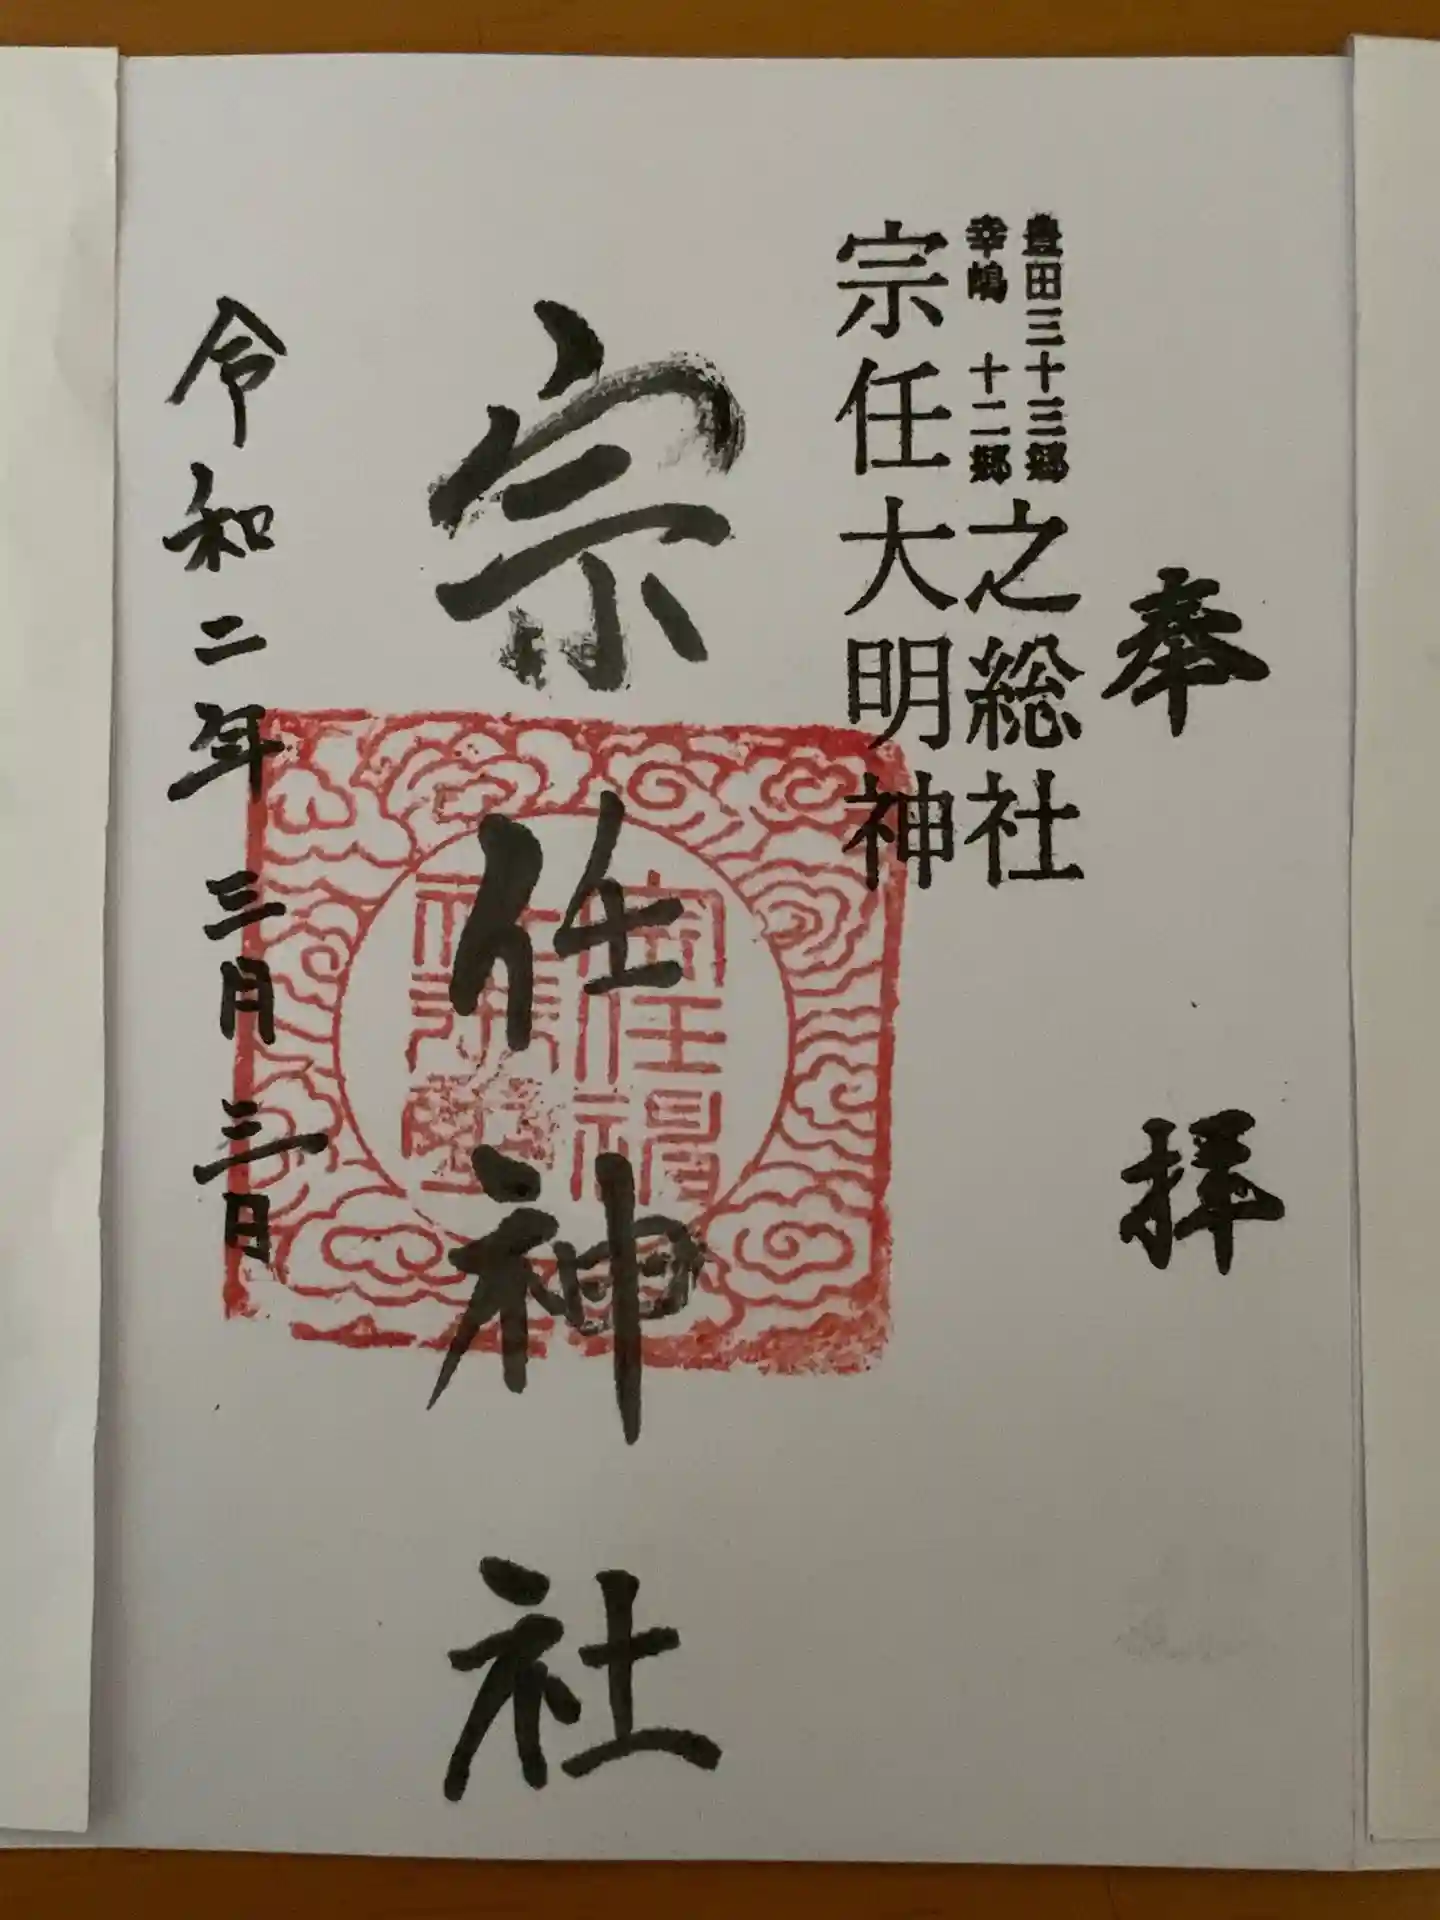 奉拝
豊田三十三郷
幸嶋 十二郷
之総社
宗任大明神
宗任神社
令和二年三月三日